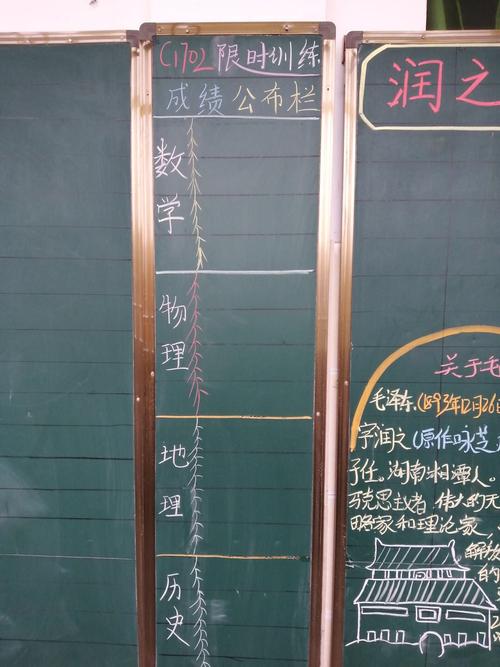 C1702限时训练
成绩公布栏
数学
物理
地理
历史
润之
关于毛
毛泽东(1893年12月26日
字润之(原作咏芝
子任。湖南湘潭人。
马克思主义者,伟大的无
略家和理论家,
解放
的